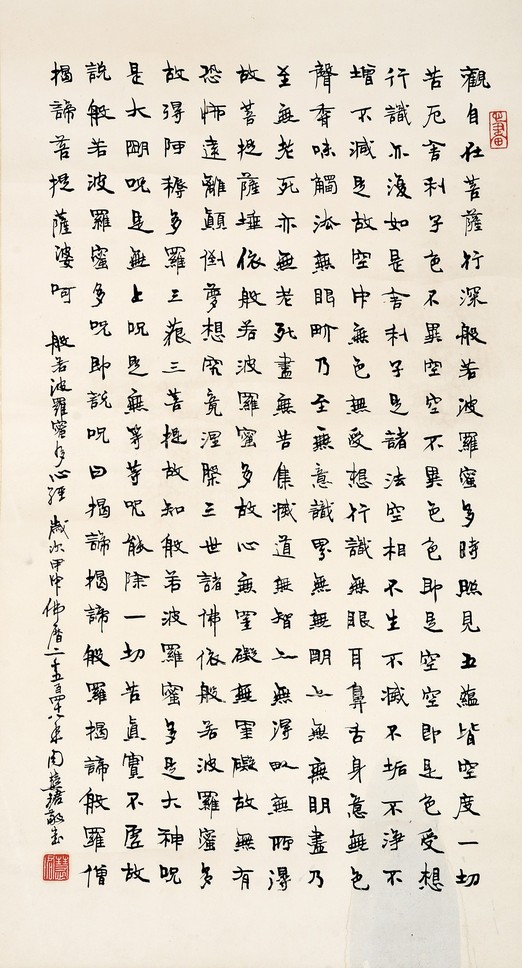 觀自在菩薩行深般若波羅蜜多時照見五蘊皆空度一切
苦厄舍利子色不異空空不異色色即是空空即是色受想
行識亦復如是舍利子是諸法空相不生不滅不垢不淨不
增不減是故空中無色無受想行識無眼耳鼻舌身意無色
聲香味觸法無眼界乃至無意識界無無明亦無無明盡乃
至無老死亦無老死盡無苦集滅道無智亦無得以無所得
故菩提薩埵依般若波羅蜜多故心無罣礙無罣礙故無有
恐怖遠離顛倒夢想究竟涅槃三世諸佛依般若波羅蜜多
故得阿耨多羅三藐三菩提故知般若波羅蜜多是大神呪
是大明呪是無上呪是無等等呪能除一切苦真實不虛故
說般若波羅蜜多呪即說呪曰揭諦揭諦般羅揭諦般羅僧
揭諦菩提薩婆呵 般若波羅蜜多心經 歲次甲申佛曆二千五百四十八年周慧珺敬書